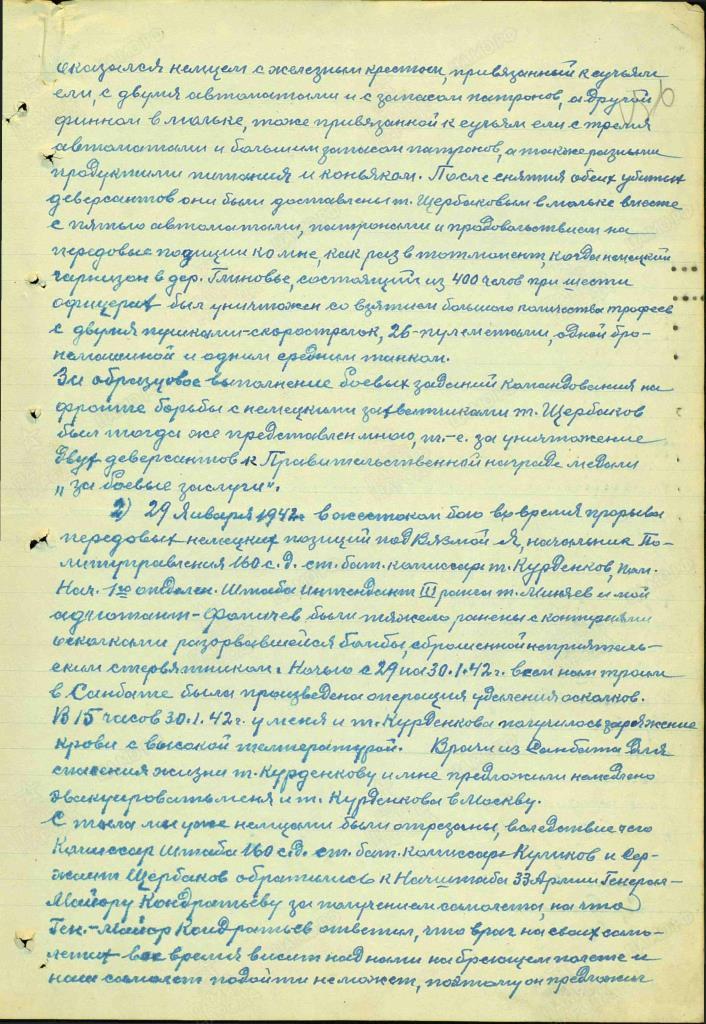 оказался немцем с железным крестом, привязанный к сучьям
ели, с двумя автоматами и с запасом патронов, а другой
финном в люльке, тоже привязанной к сучьям ели с тремя
автоматами и большим запасом патронов, а также разными
продуктами питания и коньяком. После снятия обеих убитых
деверсантов они были доставлены т. Щербаковым в люльке вместе
с пятью автоматами, патронами и продовольствием на
передовые позиции ко мне, как раз в тот момент, когда немецкий
гарнизон в дер. Глиновье, состоящий из 400 челов при шести
офицерах был уничтожен со взятием большого количества трофеев
с двумя пушками-скорострелок, 26-пулеметами, одной бро-
немашиной и одним средним танком.
За образцовое выполнение боевых заданий командования на
фронте борьбы с немецкими захватчиками т. Щербаков
был тогда же представлен мною, т.-е. за уничтожение
двух деверсантов к Правительственной награде медали
„за боевые заслуги".
2) 29 Января 1942г. в жестоком бою во время прорыва
передовых немецких позиций под Вязмой Я, начальник По-
литуправления 160 с.д. ст. бат. комиссар т. Курденков, пом.
Нач. 1го отделен. Штаба Интендант III ранга т. Миняев и мой
адютант-Фомичев были тяжело ранены с контузиями
осколками разорвавшейся бомбы, сброшенной неприятель-
ским стервятником. Ночью с 29 на 30.1.42г. всем нам троим
в Санбате была произведена операция удаления осколков.
В 15 часов 30.1.42г. у меня и т. Курденкова получилось заражение
крови с высокой температурой. Врачи из Санбата для
спасения жизни т. Курденкову и мне предложили немедлено
эвакуировать меня и т. Курденкова в Москву.
С тыла мы уже немцами были отрезаны, вследствие чего
Комиссар штаба 160 с.д. ст. бат. комиссар Куликов и Сер-
жант Щербаков обратились к Начштаба 33 Армии Генерал-
Майору Кондратьеву за получением самолета, на что
Ген.-Майор Кондратьев ответил, что враг на своих само-
летах все время висит над нами на бреющем полете и
наш самолет подойти не может, поэтому он предложил